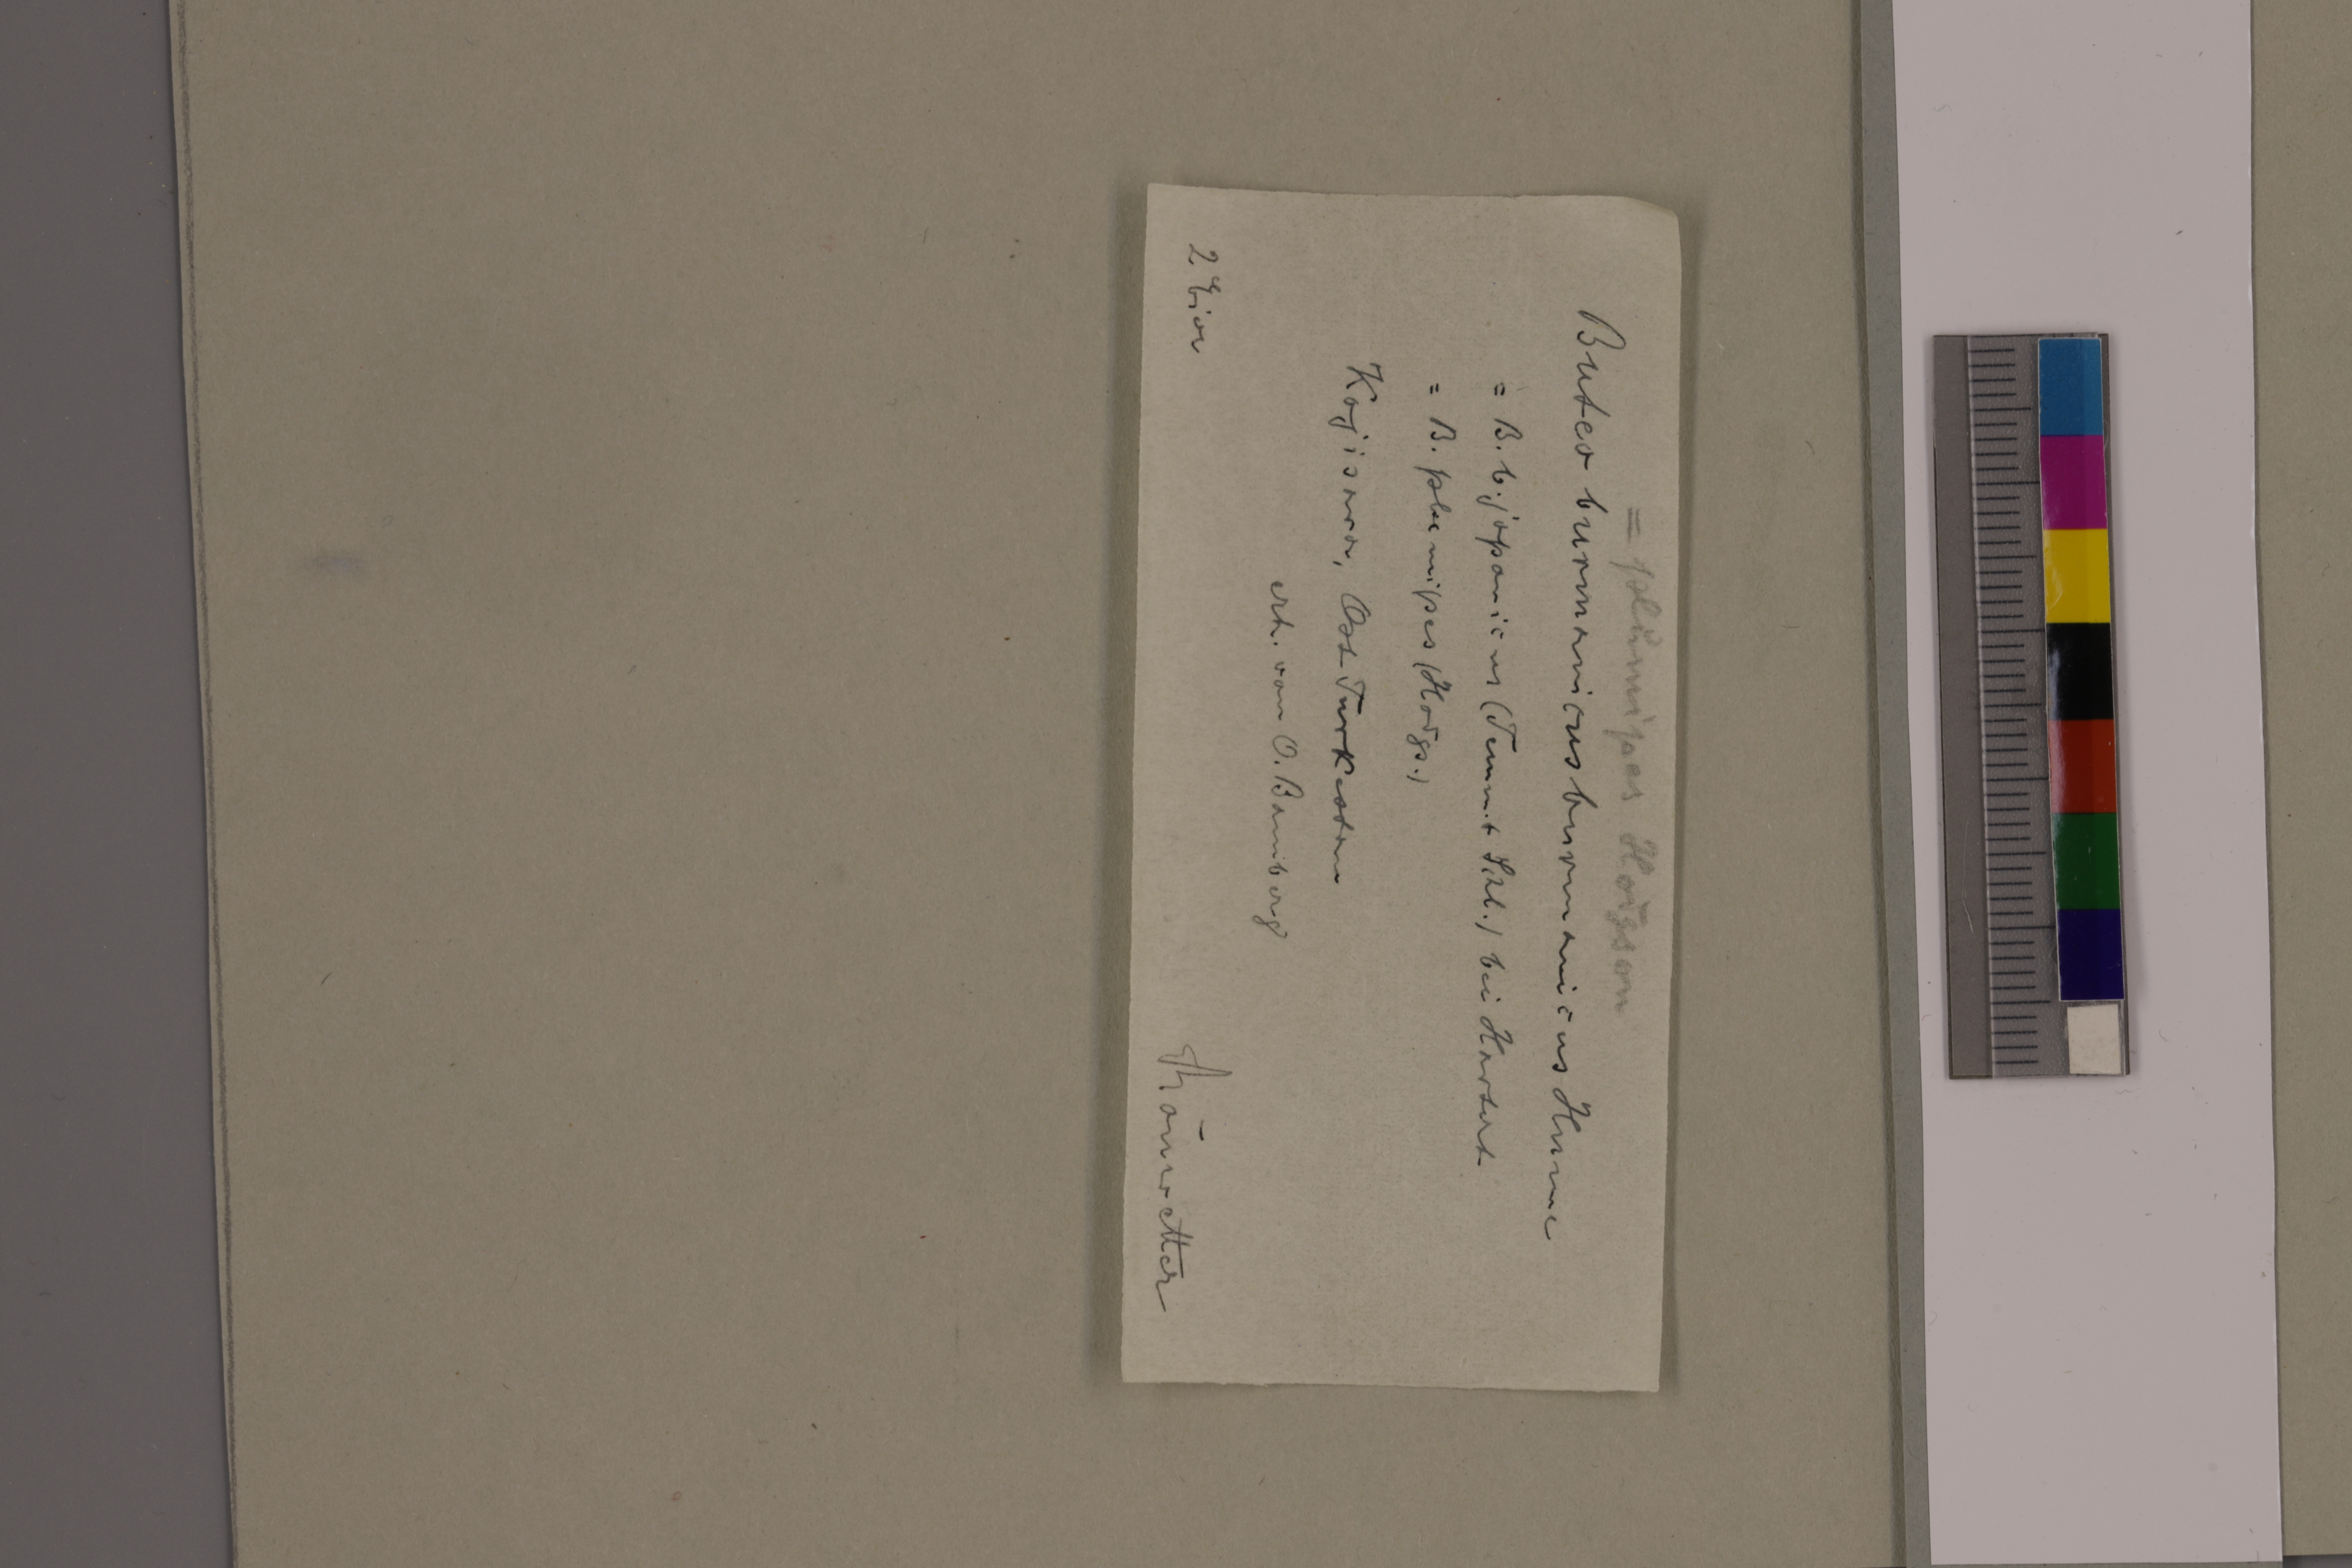 = plumipes Hodgson
Buteo burmanicus burmanicus Hume
= B. b. japonicus (Temm. + Schl.) bei Hartert
= B. plumipes (Hodgs.)
Ost Turkestan
erh. von O. Bamberg
2 Eier
Schönwetter